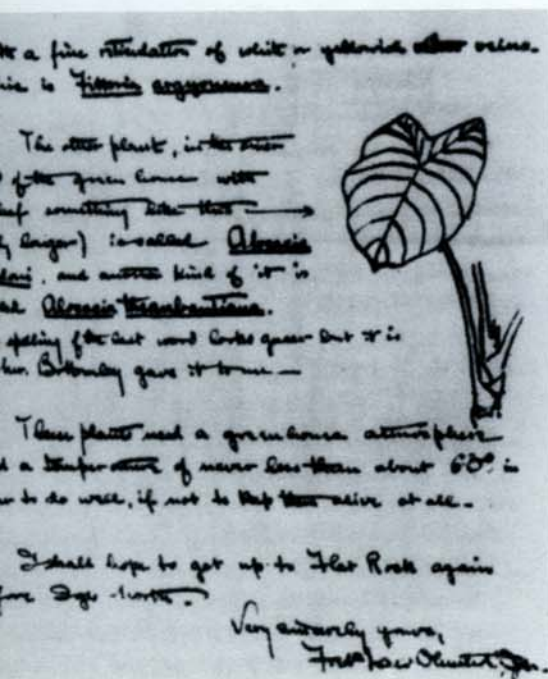 a fine reticulation of white or yellowish veins.
is Fittonia argyroneura.
The other plant, in the
of the green house with
something like this
larger) is called Alocasia
and another kind of it is
Alocasia thambautiana.
spelling of the last word looks queer but it is
Bottomley gave it to me —
These plants need a greenhouse atmosphere
a temperature of never less than about 60° in
to do well, if not to keep them alive at all.
I shall hope to get up to Flat Rock again
I go north.
Very sincerely yours,
Fredk Law Olmsted, Jr.